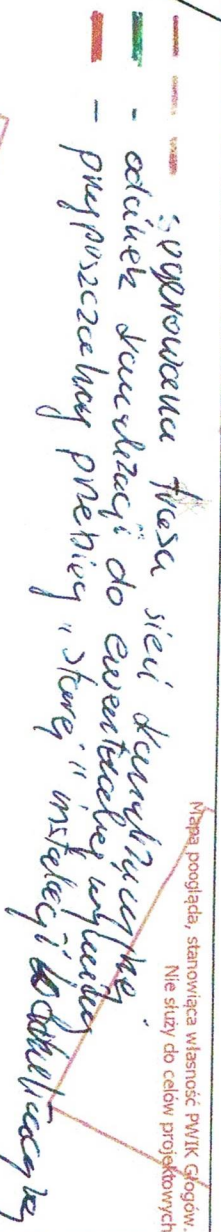 Mapa poogląda, stanowiąca własność PWIK Głogów.
Nie służy do celów projektowych
sugerowana trasa sieci kanalizacyjnej
- odcinek kanalizacji do ewentualnej wymiany
- przypuszczalny przebieg "starej" instalacji